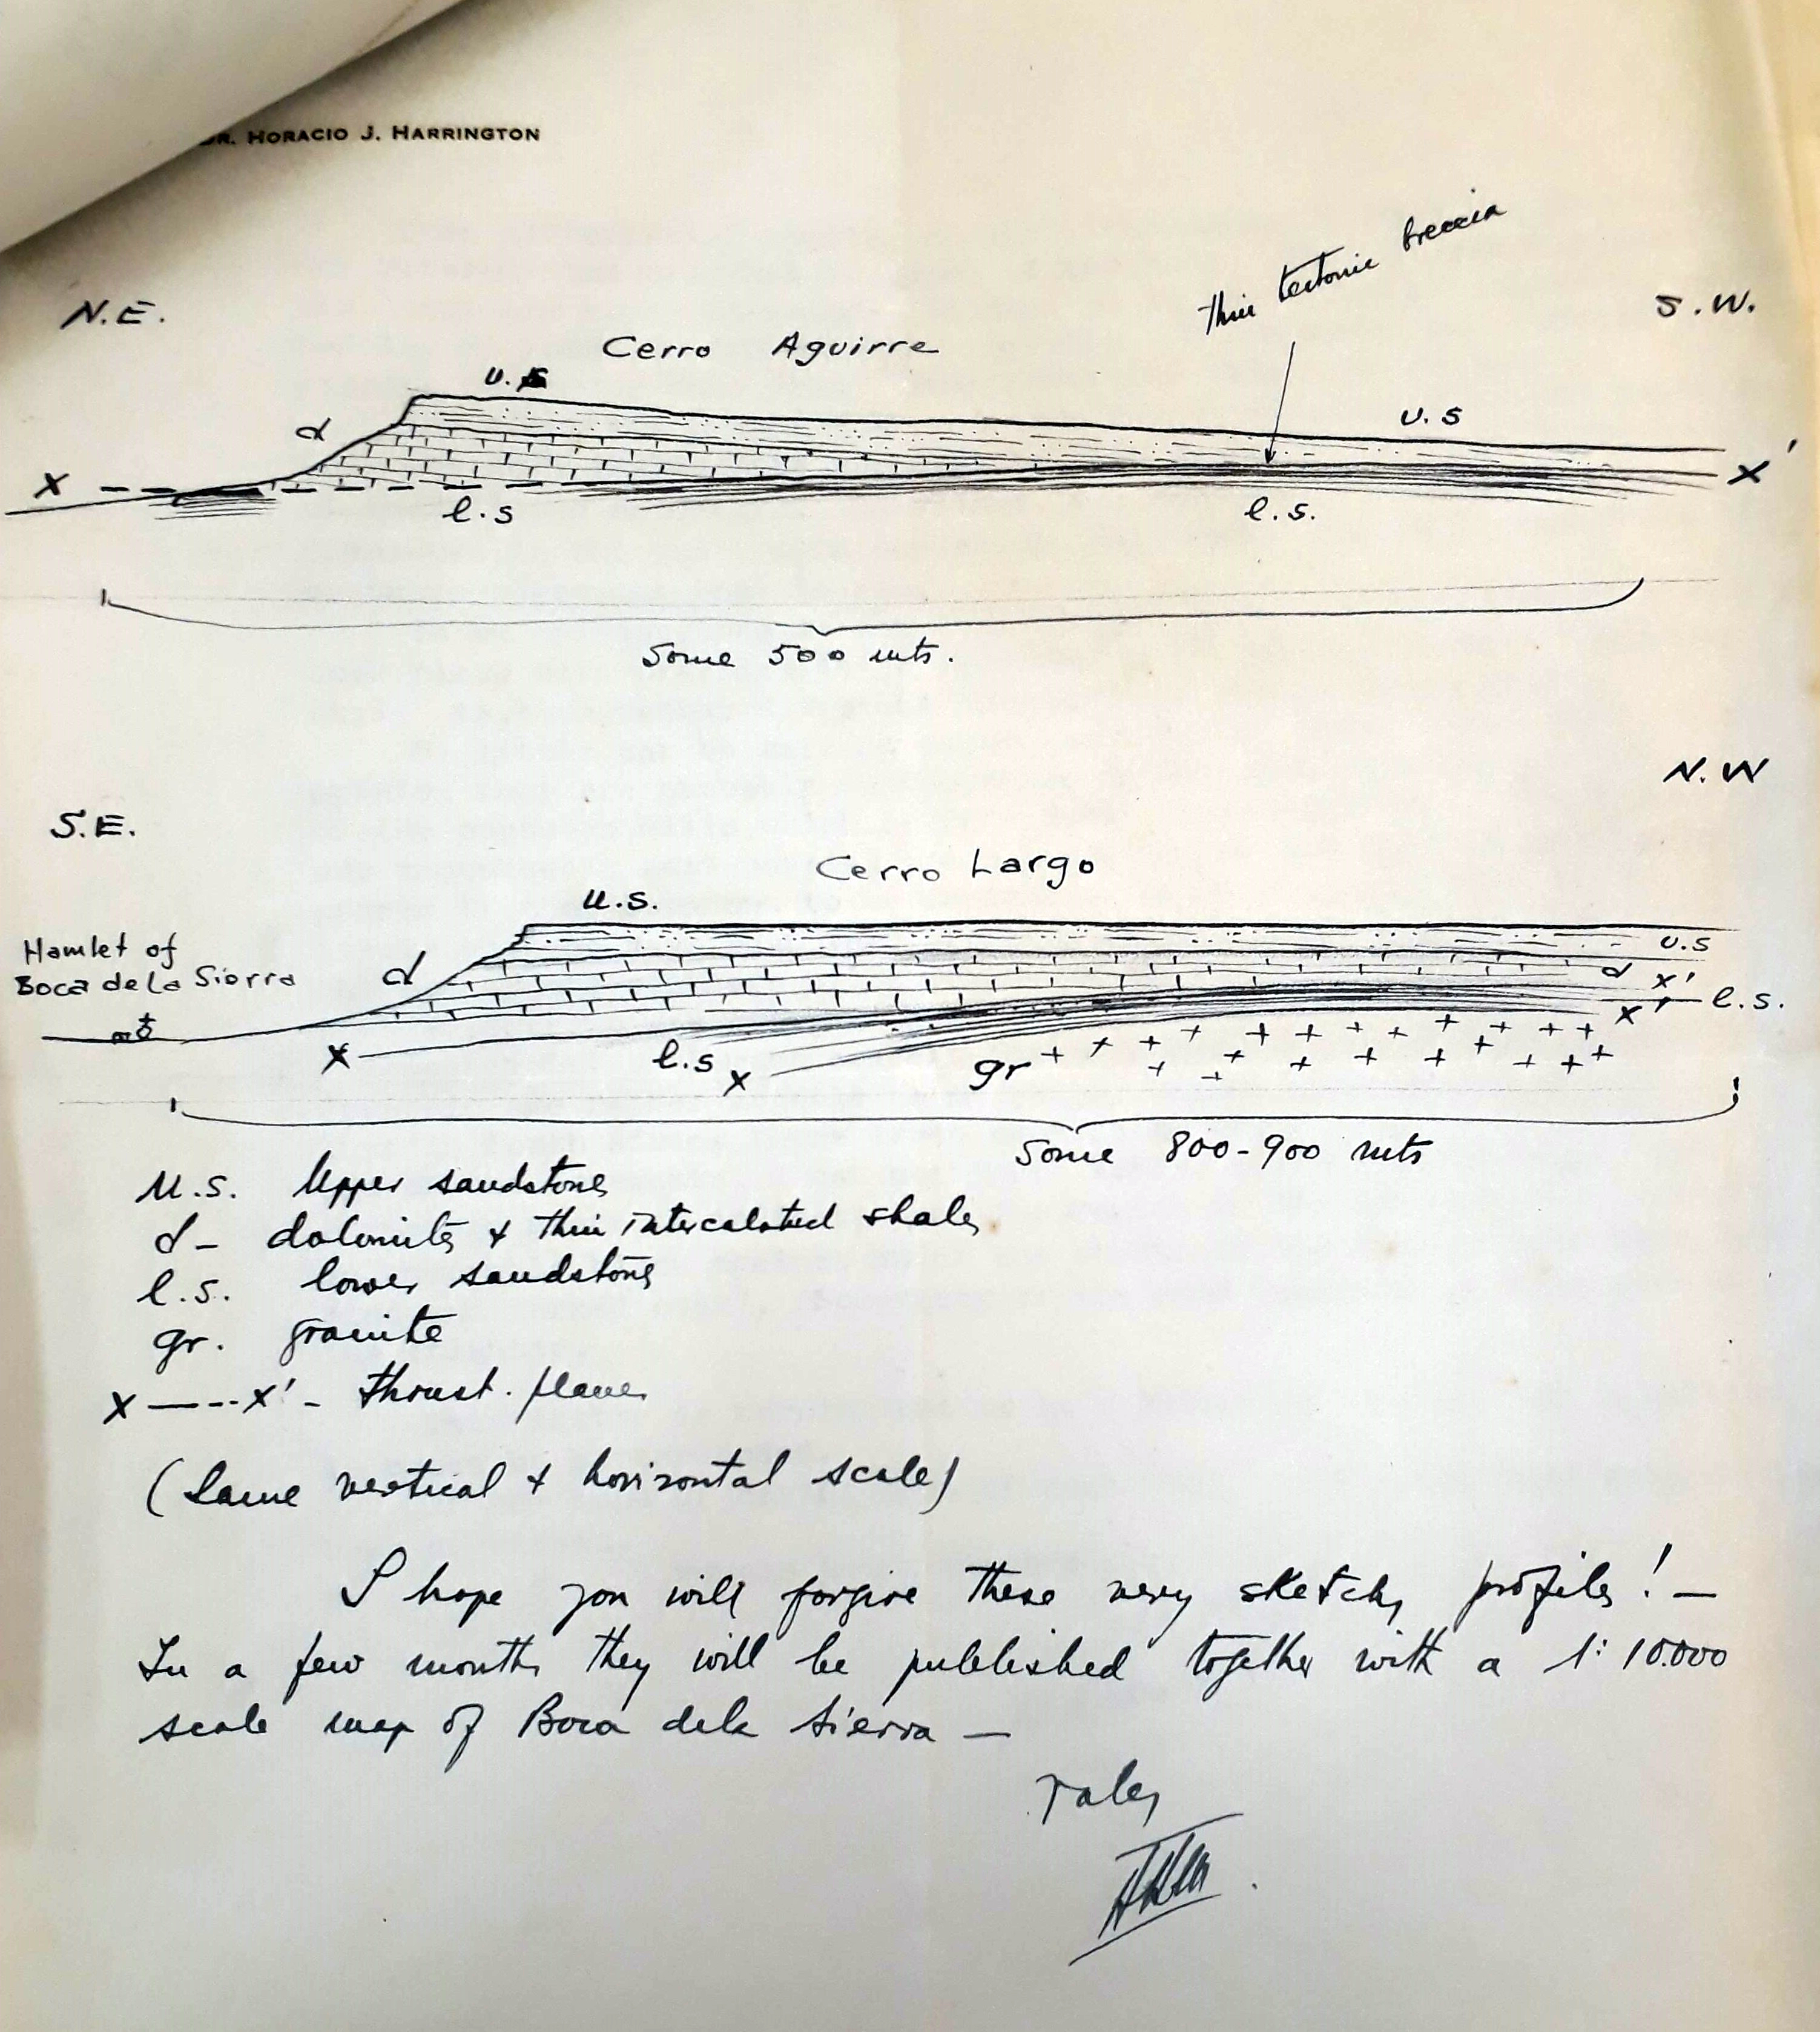 DR. HORACIO J. HARRINGTON
thin tectonic breccia
N.E.
S.W.
Cerro Aguirre
u.s
d
u.s
x
x'
l.s
l.s.
Some 500 mts.
N.W
S.E.
Cerro Largo
u.s.
Hamlet of
Boca de la Sierra
d
u.s
d
x'
l.s.
x'
x
l.s
x
gr
Some 800-900 mts
U.S. Upper sandstones
d- dolomites & thin intercalated shales
l.s. lower sandstones
gr. granite
x----x' - thrust. planes
(Same vertical & horizontal scale)
I hope you will forgive these very sketchy profiles! -
In a few months they will be published together with a 1:10.000
scale map of Boca de la Sierra -